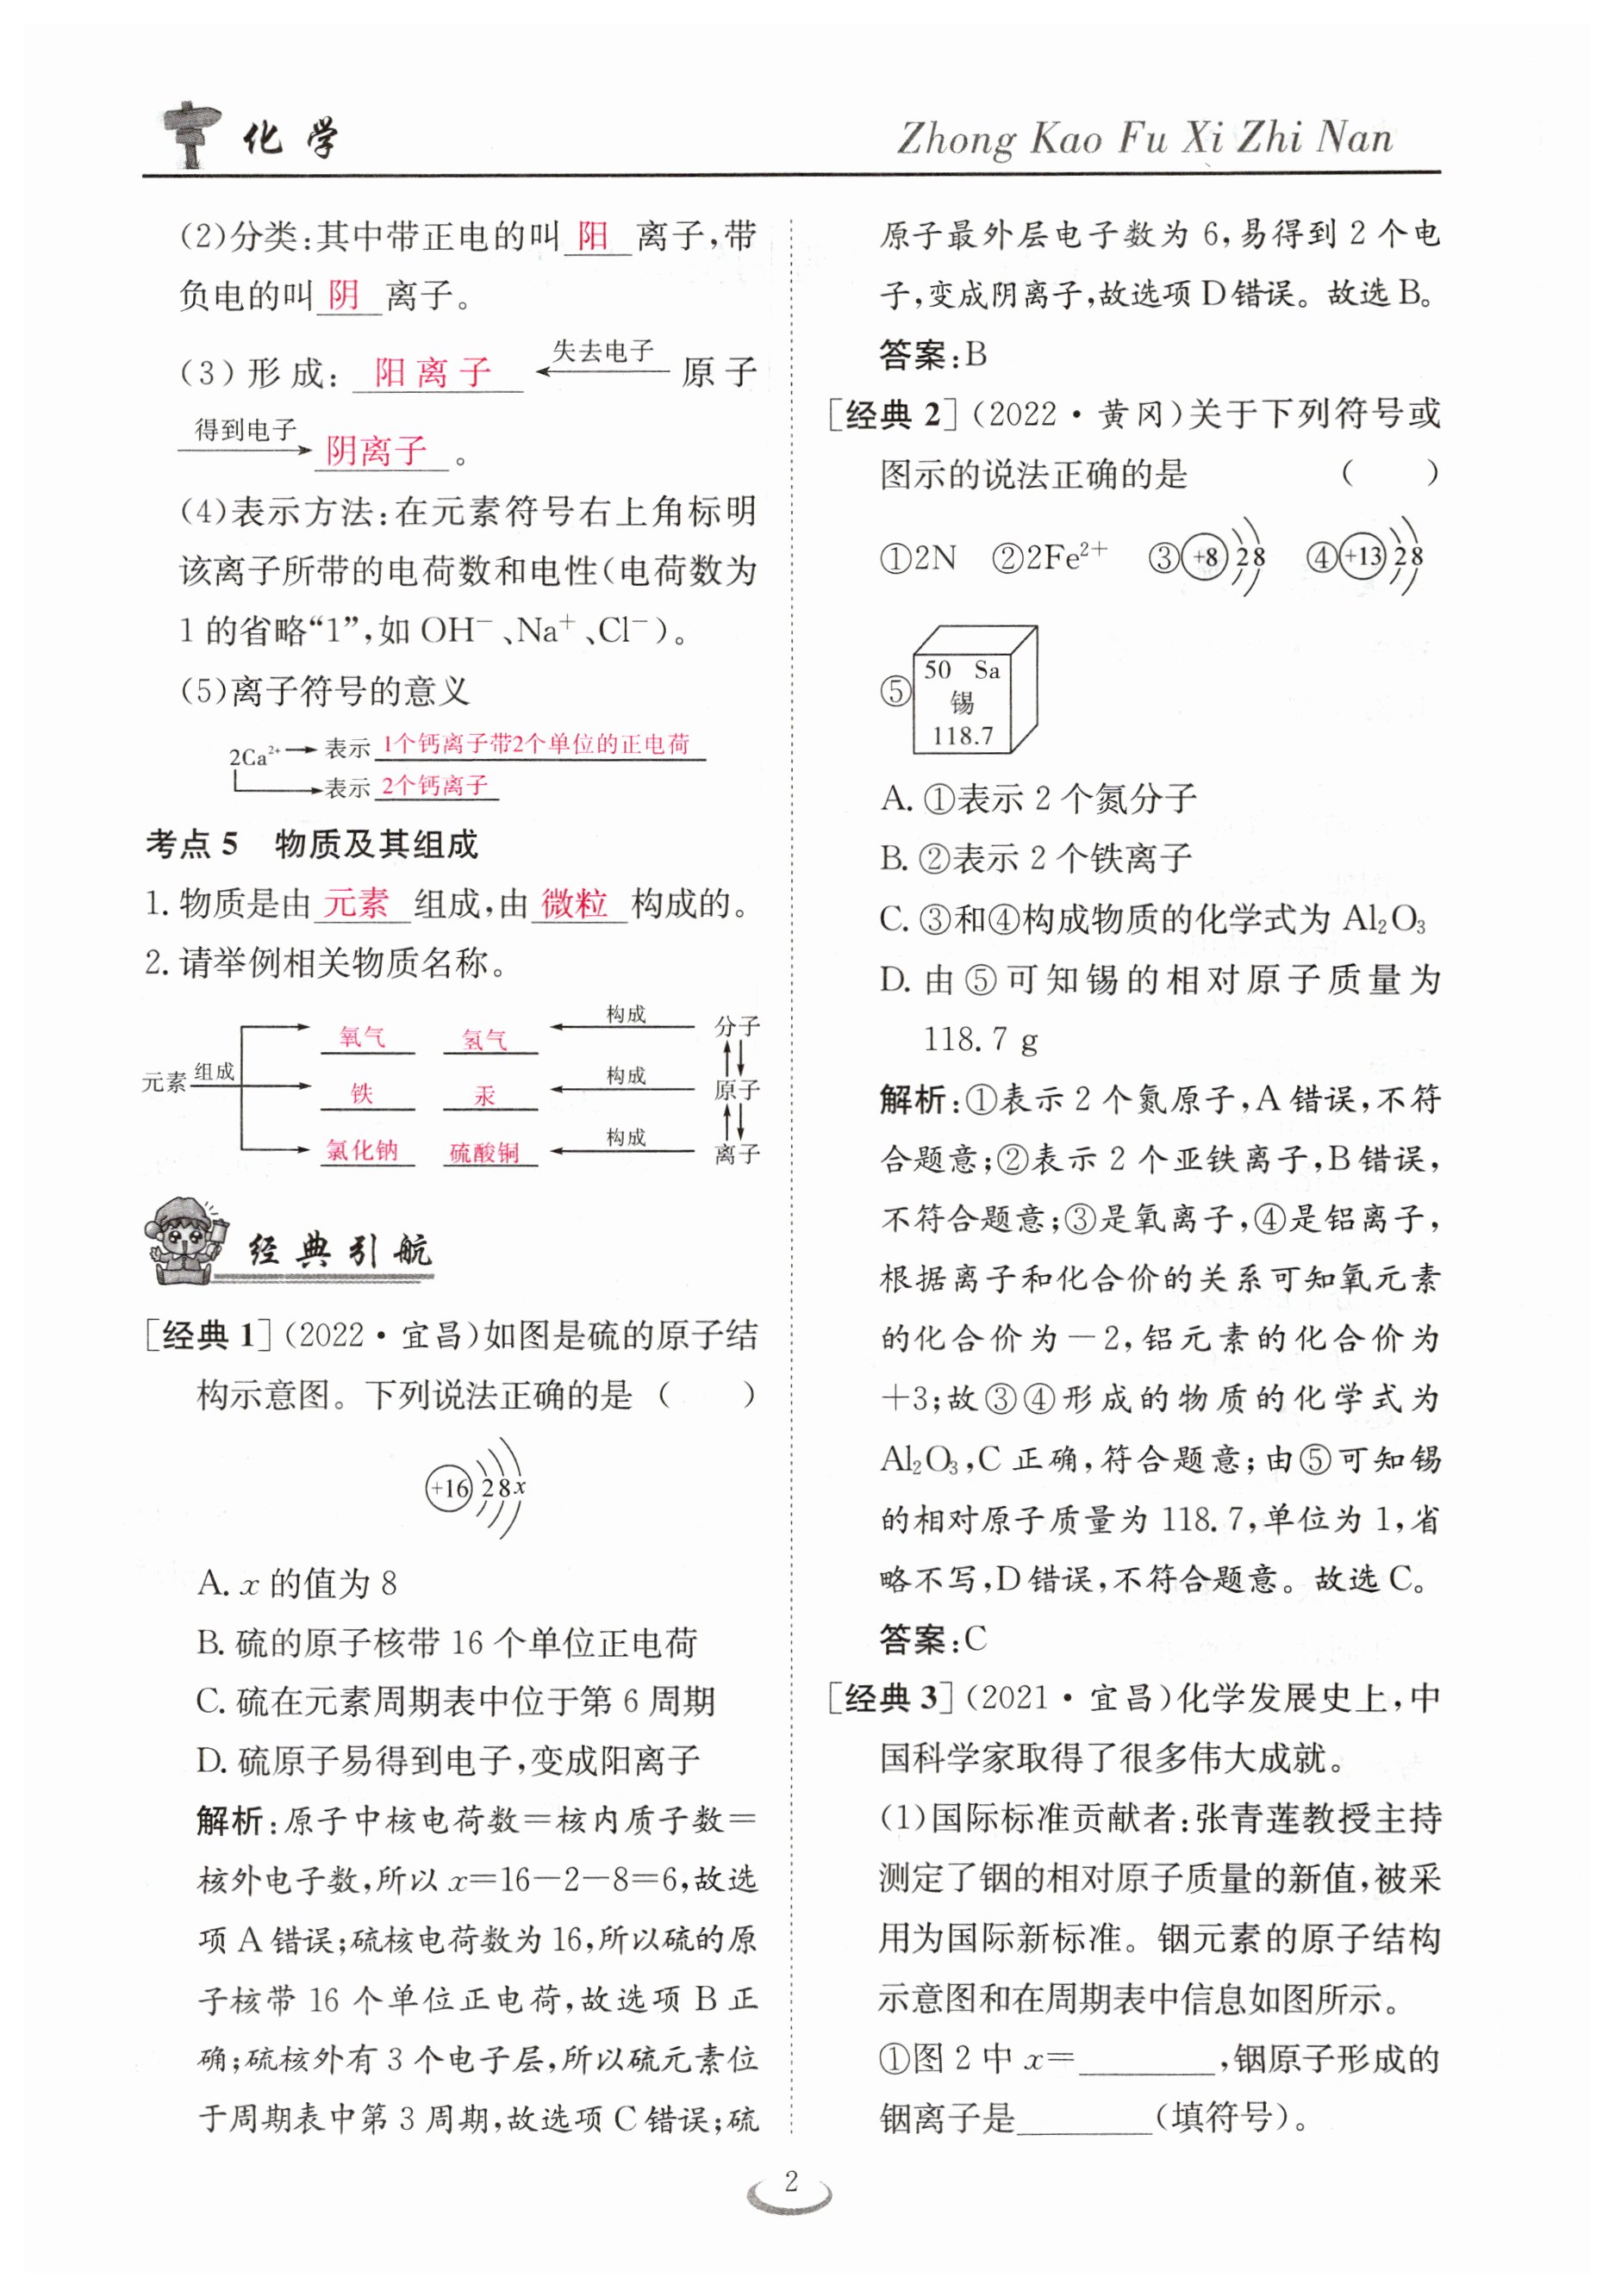 化学
Zhong Kao Fu Xi Zhi Nan
(2)分类:其中带正电的叫 阳 离子,带
负电的叫 阴 离子。
(3)形成: 阳离子 ←失去电子 原子
得到电子→ 阴离子 。
(4)表示方法:在元素符号右上角标明
该离子所带的电荷数和电性(电荷数为
1的省略“1”,如OH⁻、Na⁺、Cl⁻)。
(5)离子符号的意义
2Ca²⁺→表示 1个钙离子带2个单位的正电荷
→表示 2个钙离子
考点5 物质及其组成
1. 物质是由 元素 组成,由 微粒 构成的。
2. 请举例相关物质名称。
氧气 氢气 ←构成 分子
元素 组成 铁 汞 ←构成 原子
氯化钠 硫酸铜 ←构成 离子
经典引航
[经典1](2022·宜昌)如图是硫的原子结
构示意图。下列说法正确的是 ( )
+16 2 8 x
A. x的值为8
B. 硫的原子核带16个单位正电荷
C. 硫在元素周期表中位于第6周期
D. 硫原子易得到电子,变成阳离子
解析:原子中核电荷数=核内质子数=
核外电子数,所以x=16-2-8=6,故选
项A错误;硫核电荷数为16,所以硫的原
子核带16个单位正电荷,故选项B正
确;硫核外有3个电子层,所以硫元素位
于周期表中第3周期,故选项C错误;硫
原子最外层电子数为6,易得到2个电
子,变成阴离子,故选项D错误。故选B。
答案:B
[经典2](2022·黄冈)关于下列符号或
图示的说法正确的是 ( )
①2N ②2Fe²⁺ ③+8 2 8 ④+13 2 8
⑤ 50 Sa
锡
118.7
A. ①表示2个氮分子
B. ②表示2个铁离子
C. ③和④构成物质的化学式为Al₂O₃
D. 由⑤可知锡的相对原子质量为
118.7 g
解析:①表示2个氮原子,A错误,不符
合题意;②表示2个亚铁离子,B错误,
不符合题意;③是氧离子,④是铝离子,
根据离子和化合价的关系可知氧元素
的化合价为-2,铝元素的化合价为
+3;故③④形成的物质的化学式为
Al₂O₃,C正确,符合题意;由⑤可知锡
的相对原子质量为118.7,单位为1,省
略不写,D错误,不符合题意。故选C。
答案:C
[经典3](2021·宜昌)化学发展史上,中
国科学家取得了很多伟大成就。
(1)国际标准贡献者:张青莲教授主持
测定了铟的相对原子质量的新值,被采
用为国际新标准。铟元素的原子结构
示意图和在周期表中信息如图所示。
①图2中x=________,铟原子形成的
铟离子是________(填符号)。
2